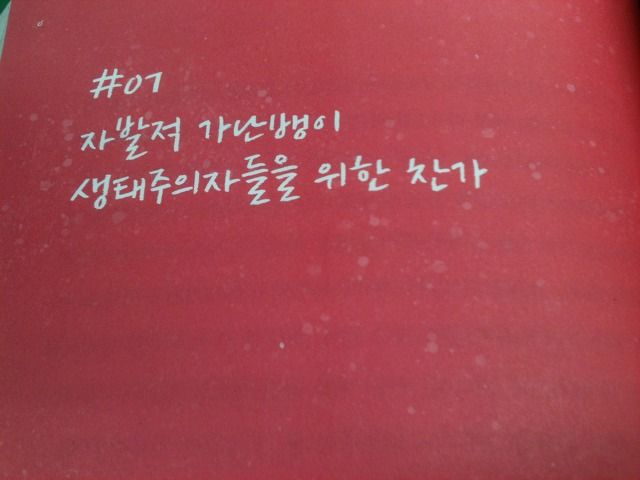 #07
자발적 가난뱅이
생태주의자들을 위한 찬가